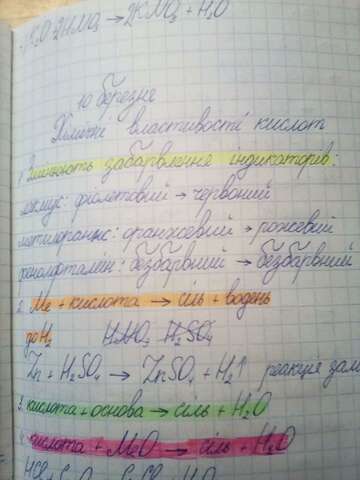 K₂O + 2HNO₃ → 2KNO₃ + H₂O
10 березня
Хімічні властивості кислот
1. Змінюють забарвлення індикаторів:
лакмус: фіолетовий → червоний
метилоранж: оранжевий → рожевий
фенолфталеїн: безбарвний → безбарвний
2. Me + кислота → сіль + водень
до H₂ HNO₃ H₂SO₄
Zn + H₂SO₄ → ZnSO₄ + H₂↑ реакція зам
3. кислота + основа → сіль + H₂O
4. кислота + MeO → сіль + H₂O